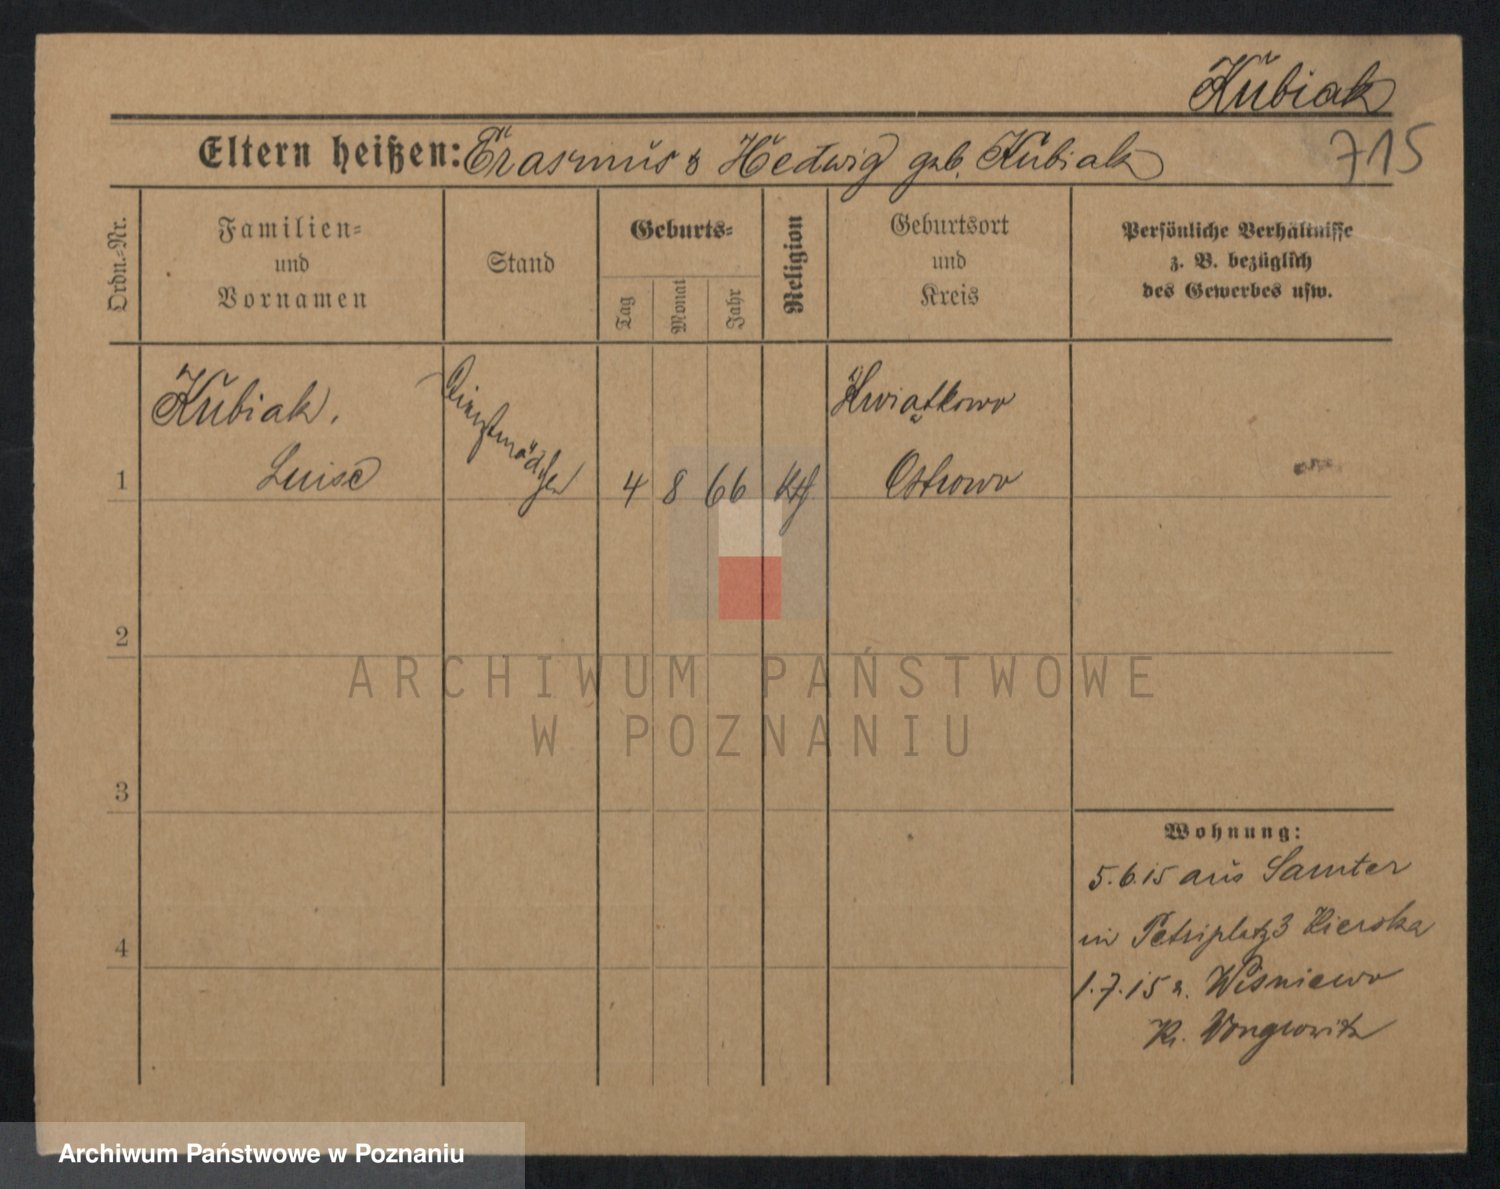 Kubiak
Eltern heißen: Erasmus & Hedwig geb. Kubiak
715
Ordn.-Nr.
Familien-
und
Vornamen
Stand
Geburts-
Tag
Monat
Jahr
Religion
Geburtsort
und
Kreis
Persönliche Verhältnisse
z. B. bezüglich
des Gewerbes usw.
1
Kubiak,
Luise
Dienstmädchen
4 8 66
kth
Kwiatkowo
Ostrowo
2
3
4
Wohnung:
5.6.15 aus Samter
in Petriplatz 3
1.7.15 n. Wisniewo
Kr. Wongrowitz
ARCHIWUM PAŃSTWOWE
W POZNANIU
Archiwum Państwowe w Poznaniu